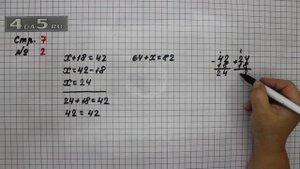 4DA5.RU
Стр. 7
№ 2
x+18=42
x=42-18
x=24
24+18=42
42=42
64+x=82
-42
18
24
+24
18